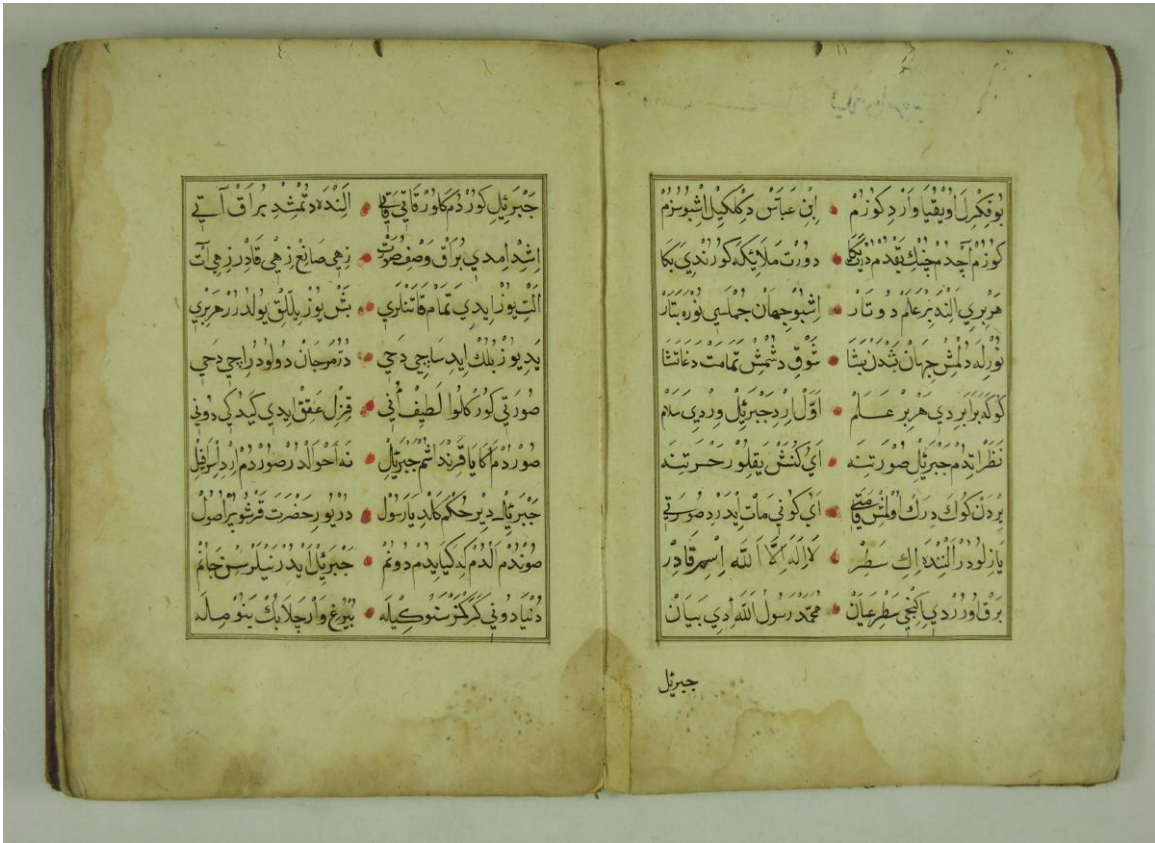 بُو فِكْرِلَه اُويْقُيَا وَارْدِ كُوزُمْ • اِبْنِ عَبَّاسْ دِكْلَكِيلْ اِشْبُو سُزُمْ
كُوزُمْ آچْدُمْ چُنْكِ بَقْدُمْ • دُورْتْ مَلَائِكَه كُورُنْدِي بَكَا
هَرْبِرِي اَلِنْدَه بِرْ عَلَمْ دُوتَارْ • اِشْبُو جِهَانْ جُمْلَسِي نُورَه بَتَارْ
نُورْلَه دُلْمِشْ جِهَانْ بَشْدَنْ بَشَا • شَوْقِ دُشْمِشْ تَمَامَتْ دَاغَا تَاشَا
كُوكَه بَرَابَرِدِي هَرْ بِرْ عَلَمْ • اَوَّلْ اِرْدِ جَبْرَئِلْ وِرْدِي سَلَامْ
نَظَرْ اِتْدُمْ جَبْرَئِلْ صُورَتِنَه • آيْ كُنَشْ يَقِلُورْ حَسْرَتِنَه
يَرْدَنْ كُوكَه دِرَكْ اُولْمِشْ قَامَتِي • آيْ كُونِي مَاتْ اِيدَرْدِ صُورَتِي
يَازِلُودُرْ اَلْنِنْدَه اِكِ سَطِرْ • لَا اِلٰهَ اِلَّا اللّٰه اِسْمِ قَادِرْ
بَرْقْ اُورُرْدِي اِكِنْجِي سَطِرْ عِيَانْ • مُحَمَّدْ رَسُولُ اللّٰه اِدِي بَيَانْ
جبرئل
جَبْرَئِلِ كُورْدُمْ كَلُورْ قَاتِي قَتِي • اَلِنْدَه دُتْمِشْدِ بُرَاقْ آتِي
اِشِدْ اِمْدِي بُرَاقْ وَصْفِ صُورَتْ • زِهِي صَانِعْ زِهِي قَادِرْ زِهِي آتْ
اَلْتِ يُوزْ اِيدِي تَمَامْ قَنَاتْلَرِي • بَشْ يُوزْ يِلّلِقْ يُولْدُرُرْ هَرْبِرِي
يَدِ يُوزْ بُلُكْ اِيدِ سَاچِي دَخِي • دُرّ مَرْجَانْ دُولُودُرْ اِچِي دَخِي
صُورَتِي كُورْكَلُو لَطِيفْ اُنِي • قِزِلْ عَقِقْ اِيدِي كَيْدُكِي دُونِي
صُورْدُمْ اَكَا يَا قَرِنْدَاشُمْ جَبْرَئِلْ • نَه اَحْوَالْدُرْ صُورْدُمْ اِرْدِ اِسْرَافِلْ
جَبْرَئِلْ دِيرْ حُكْمْ كَلْدِ يَا رَسُولْ • دُرْيُورْ حَضْرَتَ قَرْشُو اُصُولْ
صُونْدُمْ اَلْدُمْ كَيْدُمْ دُونُمْ • جَبْرَئِلْ اَيْدُرْ نَيْلَرْسِنْ جَانُمْ
دُنْيَا دُونِي كَرَكْمَزْ سَنُوكِيلَه • بُيْرُغْ وَارْ چَلَابُكْ